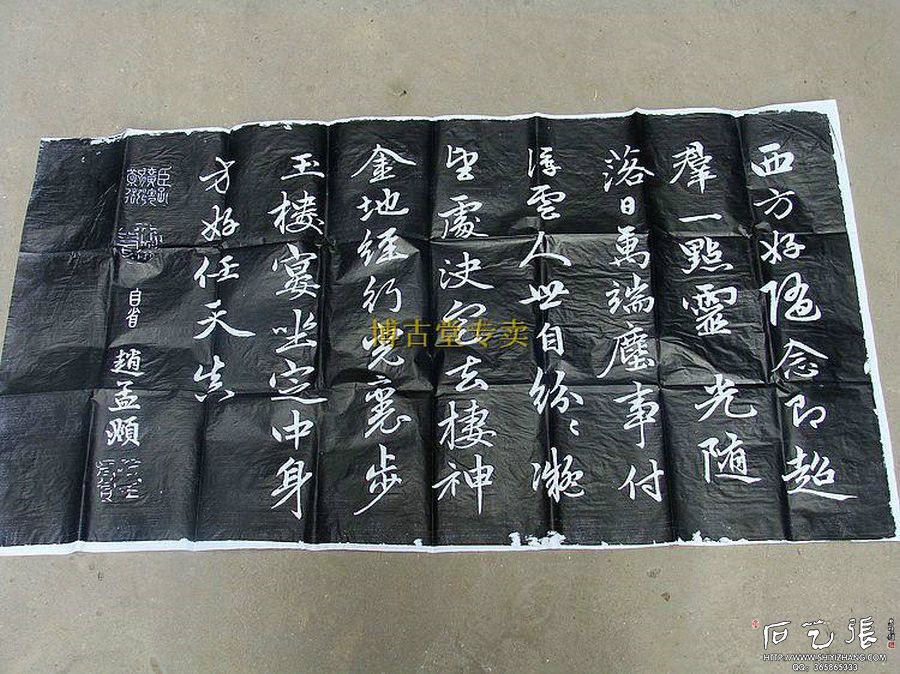 西方好隨念即超
羣一點靈光随
落日萬端塵事付
浮雲人世自紛〻凝
望處決定去棲神
金地經行光裏步
玉樓宴坐定中身
方好任天真
自省 趙孟頫
博古堂专卖
石艺張
HTTP://WWW.SHIYIZHANG.COM
QQ: 365865333